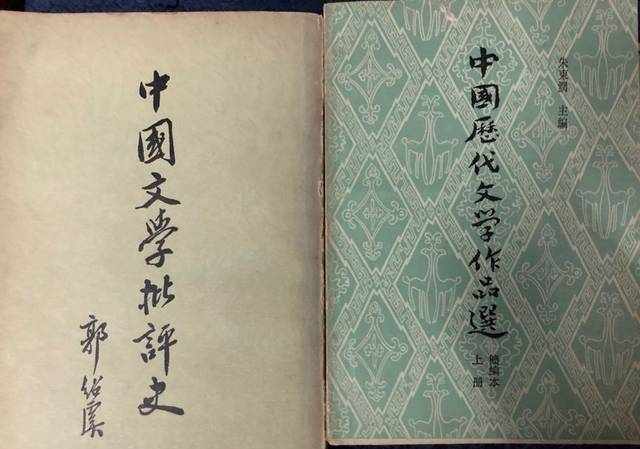 中國文學批評史
郭紹虞
朱東潤 主編
中國歷代文学作品選
簡編本
上册